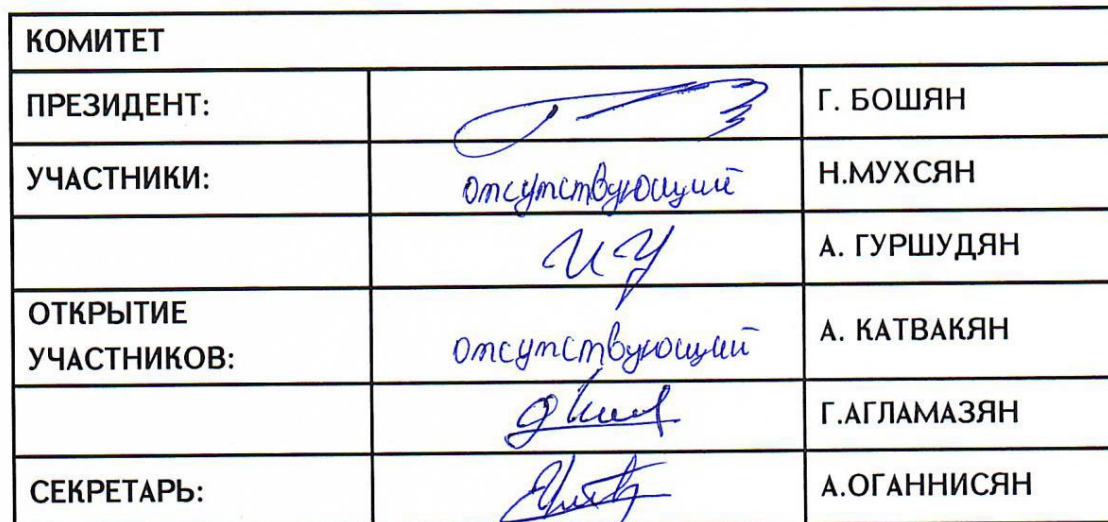 КОМИТЕТ
ПРЕЗИДЕНТ: Г. БОШЯН
УЧАСТНИКИ: отсутствующий Н.МУХСЯН
А. ГУРШУДЯН
ОТКРЫТИЕ
УЧАСТНИКОВ: отсутствующий А. КАТВАКЯН
Г.АГЛАМАЗЯН
СЕКРЕТАРЬ: А.ОГАННИСЯН